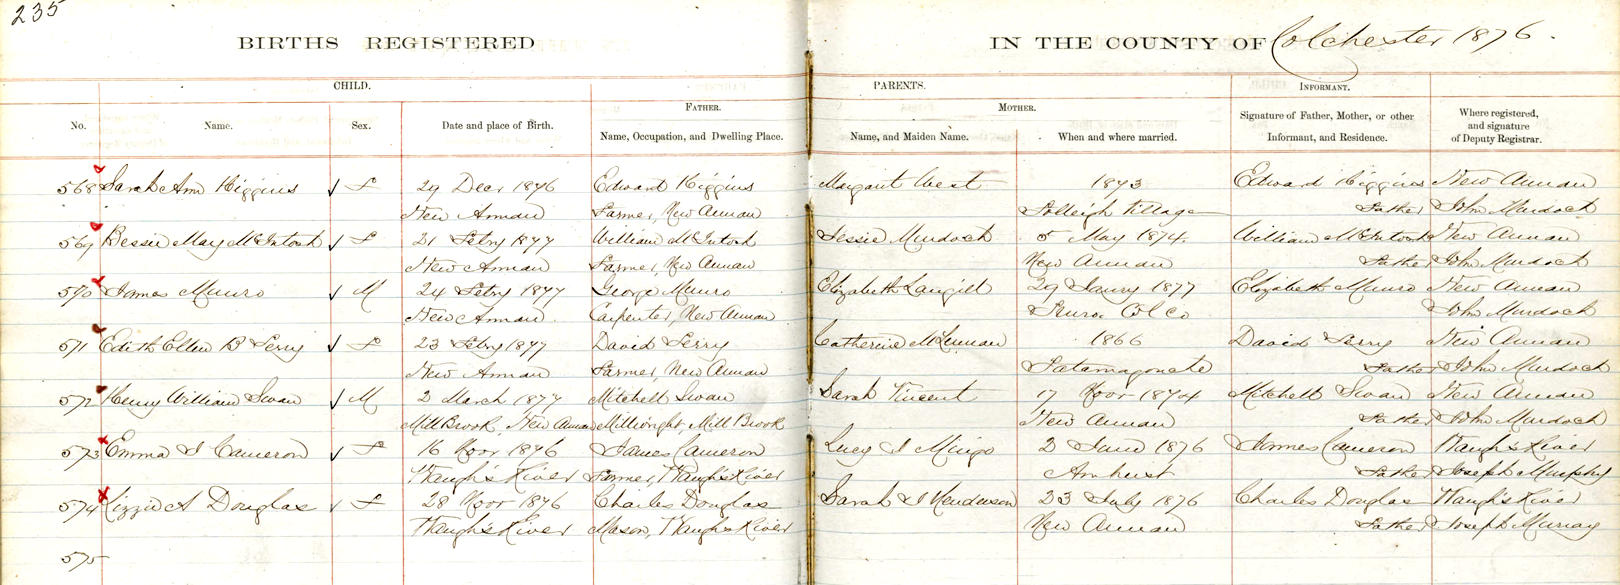 235
BIRTHS REGISTERED IN THE COUNTY OF Colchester 1876.
CHILD. PARENTS. INFORMANT.
FATHER. MOTHER.
No. Name. Sex. Date and place of Birth. Name, Occupation, and Dwelling Place. Name, and Maiden Name. When and where married. Signature of Father, Mother, or other Informant, and Residence. Where registered, and signature of Deputy Registrar.
568 Sarah Ann Higgins f 29 Decr 1876 Edward Higgins Margaret West 1873 Edward Higgins New Annan
New Annan Farmer, New Annan Village Father John Murdoch
569 Bessie May McIntosh f 21 Febry 1877 William McIntosh Jessie Murdoch 5 May 1874. William McIntosh New Annan
New Annan Farmer, New Annan New Annan Father John Murdoch
570 James Munro M 24 Febry 1877 George Munro Elizabeth Langill 29 Janry 1877 Elizabeth Munro New Annan
New Annan Carpenter, New Annan Truro Col Co John Murdoch
571 Edith Ellen B Perry f 23 Febry 1877 David Perry Catherine McLennan 1866 David Perry New Annan
New Annan Farmer, New Annan Tatamagouche Father John Murdoch
572 Henry William Swan M 2 March 1877 Mitchell Swan Sarah Vincent 17 Novr 1874 Mitchell Swan New Annan
Mill Brook, New Annan Millwright, Mill Brook New Annan Father John Murdoch
573 Emma J Cameron f 16 Novr 1876 James Cameron Lucy J Mingo 2 June 1876 James Cameron Waugh's River
Waugh's River Farmer, Waugh's River Amherst Father Joseph Murphy
574 Lizzie A Douglas f 28 Novr 1876 Charles Douglas Sarah J Henderson 23 July 1876 Charles Douglas Waugh's River
Waugh's River Mason, Waugh's River New Annan Father Joseph Murray
575